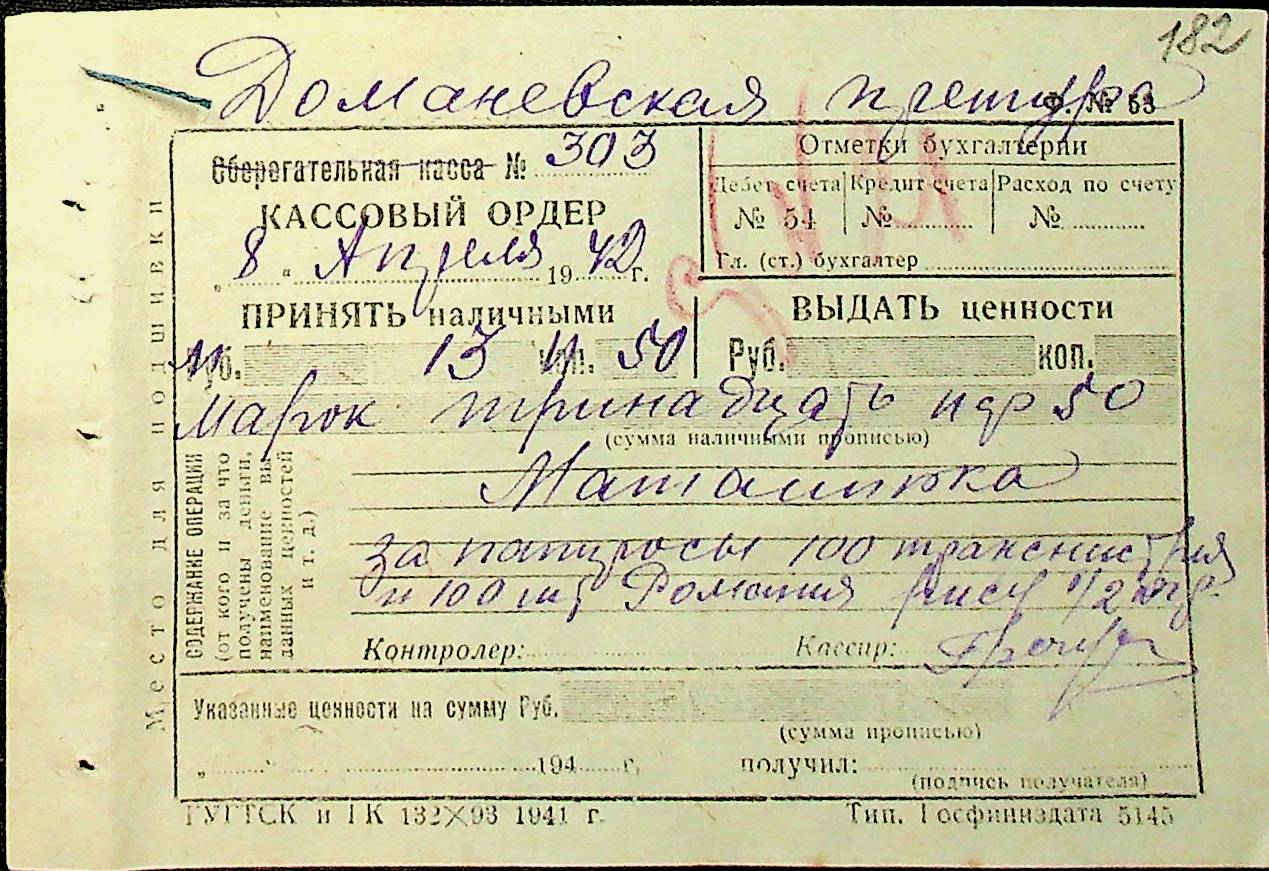 182
Доманевская претура
Ф. № 53
Сберегательная касса № 303
КАССОВЫЙ ОРДЕР
„ 8 “ Апреля 19 42 г.
Отметки бухгалтерии
Дебет счета Кредит счета Расход по счету
№ 54 № №
Гл. (ст.) бухгалтер
ПРИНЯТЬ наличными
ВЫДАТЬ ценности
Руб. 13 коп. 50
Руб. коп.
марок тринадцать пф 50
(сумма наличными прописью)
Место для подшивки
СОДЕРЖАНИЕ ОПЕРАЦИИ
(от кого и за что
получены деньги,
наименование вы
данных ценностей
и т. д.)
за папиросы 100 транснистрия
и 100 шт Романия 1/2
Контролер:
Кассир:
Указанные ценности на сумму Руб.
(сумма прописью)
„ 194 г.
получил:
(подпись получателя)
ТУГТСК и ГК 132X93 1941 г.
Тип. Госфиниздата 5145